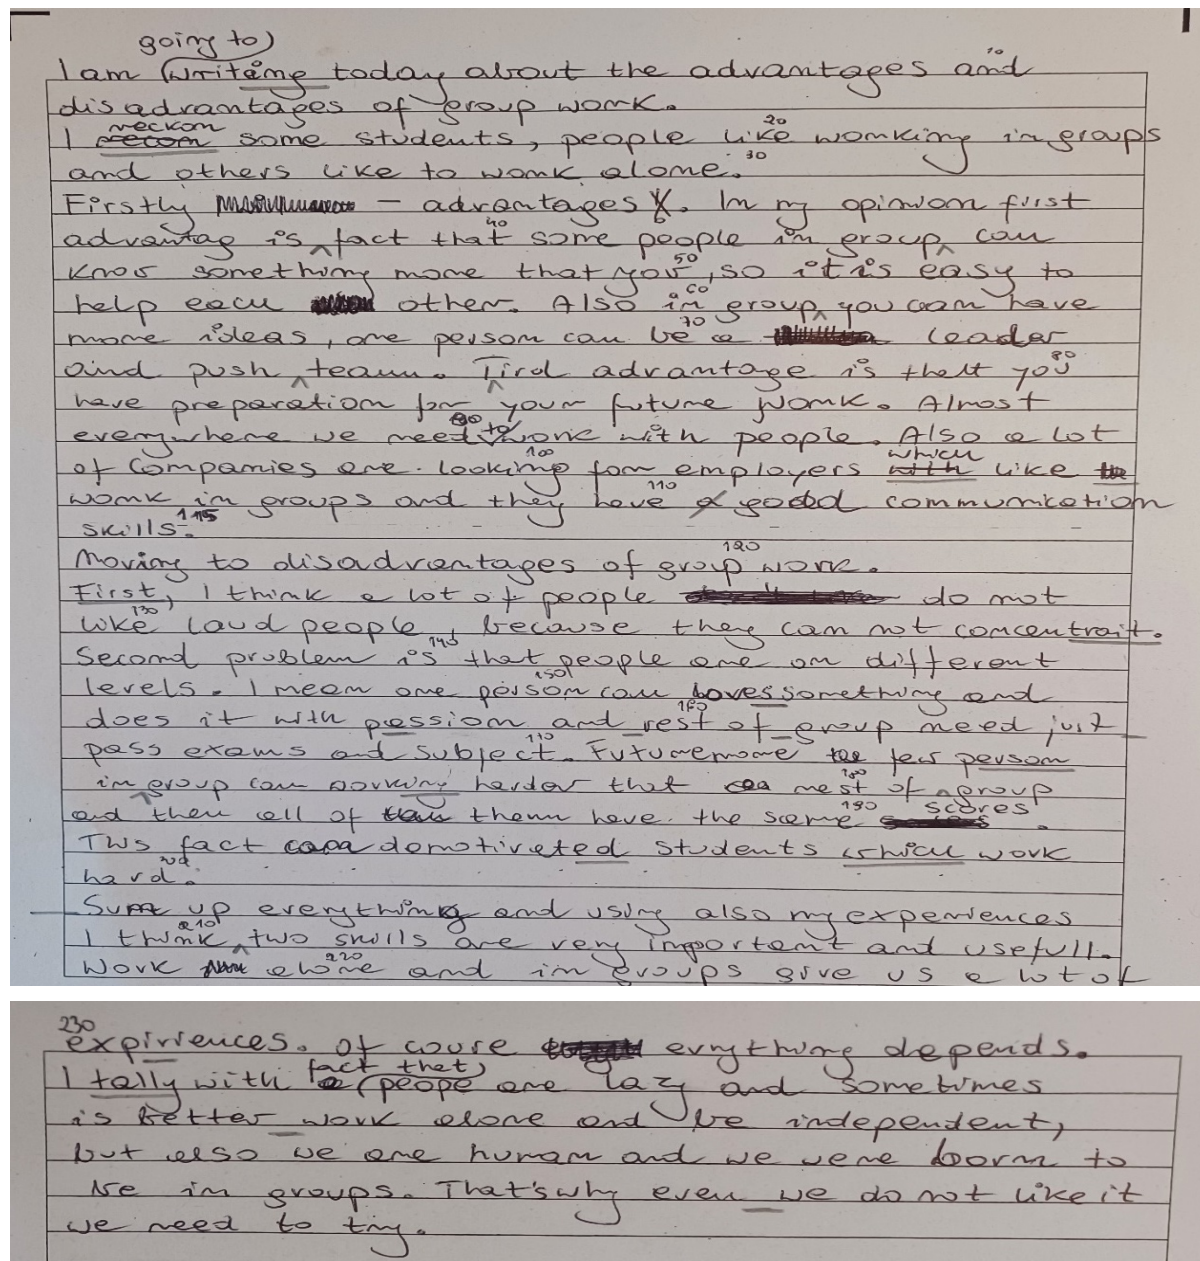 going to
I am writeing today about the advantages and 10
disadvantages of group work.
reckon
I recom some students, people like working in groups 20
and others like to work alone. 30
Firstly - advantages. In my opinion first
advantag is fact that some people in group can 40
know something more that you, so it is easy to 50
help each other. Also in group, you can have 60
more ideas, one person can be a leader 70
and push team. Tird advantage is thatt you 80
have preparation for your future work. Almost
everywhere we need to work with people. Also a lot 90
of companies are looking for employers which like 100
work in groups and they have good communication 110
skills. 115
Moving to disadvantages of group work. 120
First, I think a lot of people do not
like loud people, because they can not concentrait. 130
Second problem is that people are on different 140
levels. I mean one person can loves something and 150
does it with passion and rest of group need just 160
pass exams and subject. Futuremore few person 170
in group can working harder that rest of group 180
and then all of them have the same scores. 190
This fact demotivated students which work
hard. 200
Sum up everything and using also my experiences
I think two skills are very important and usefull. 210
Work alone and in groups give us a lot of 220
230
expiriences. Of coure evrything depends.
fact that
I tally with peope are lazy and sometimes
is better work alone and be independent,
but also we are human and we were born to
be in groups. That's why even we do not like it
we need to try.